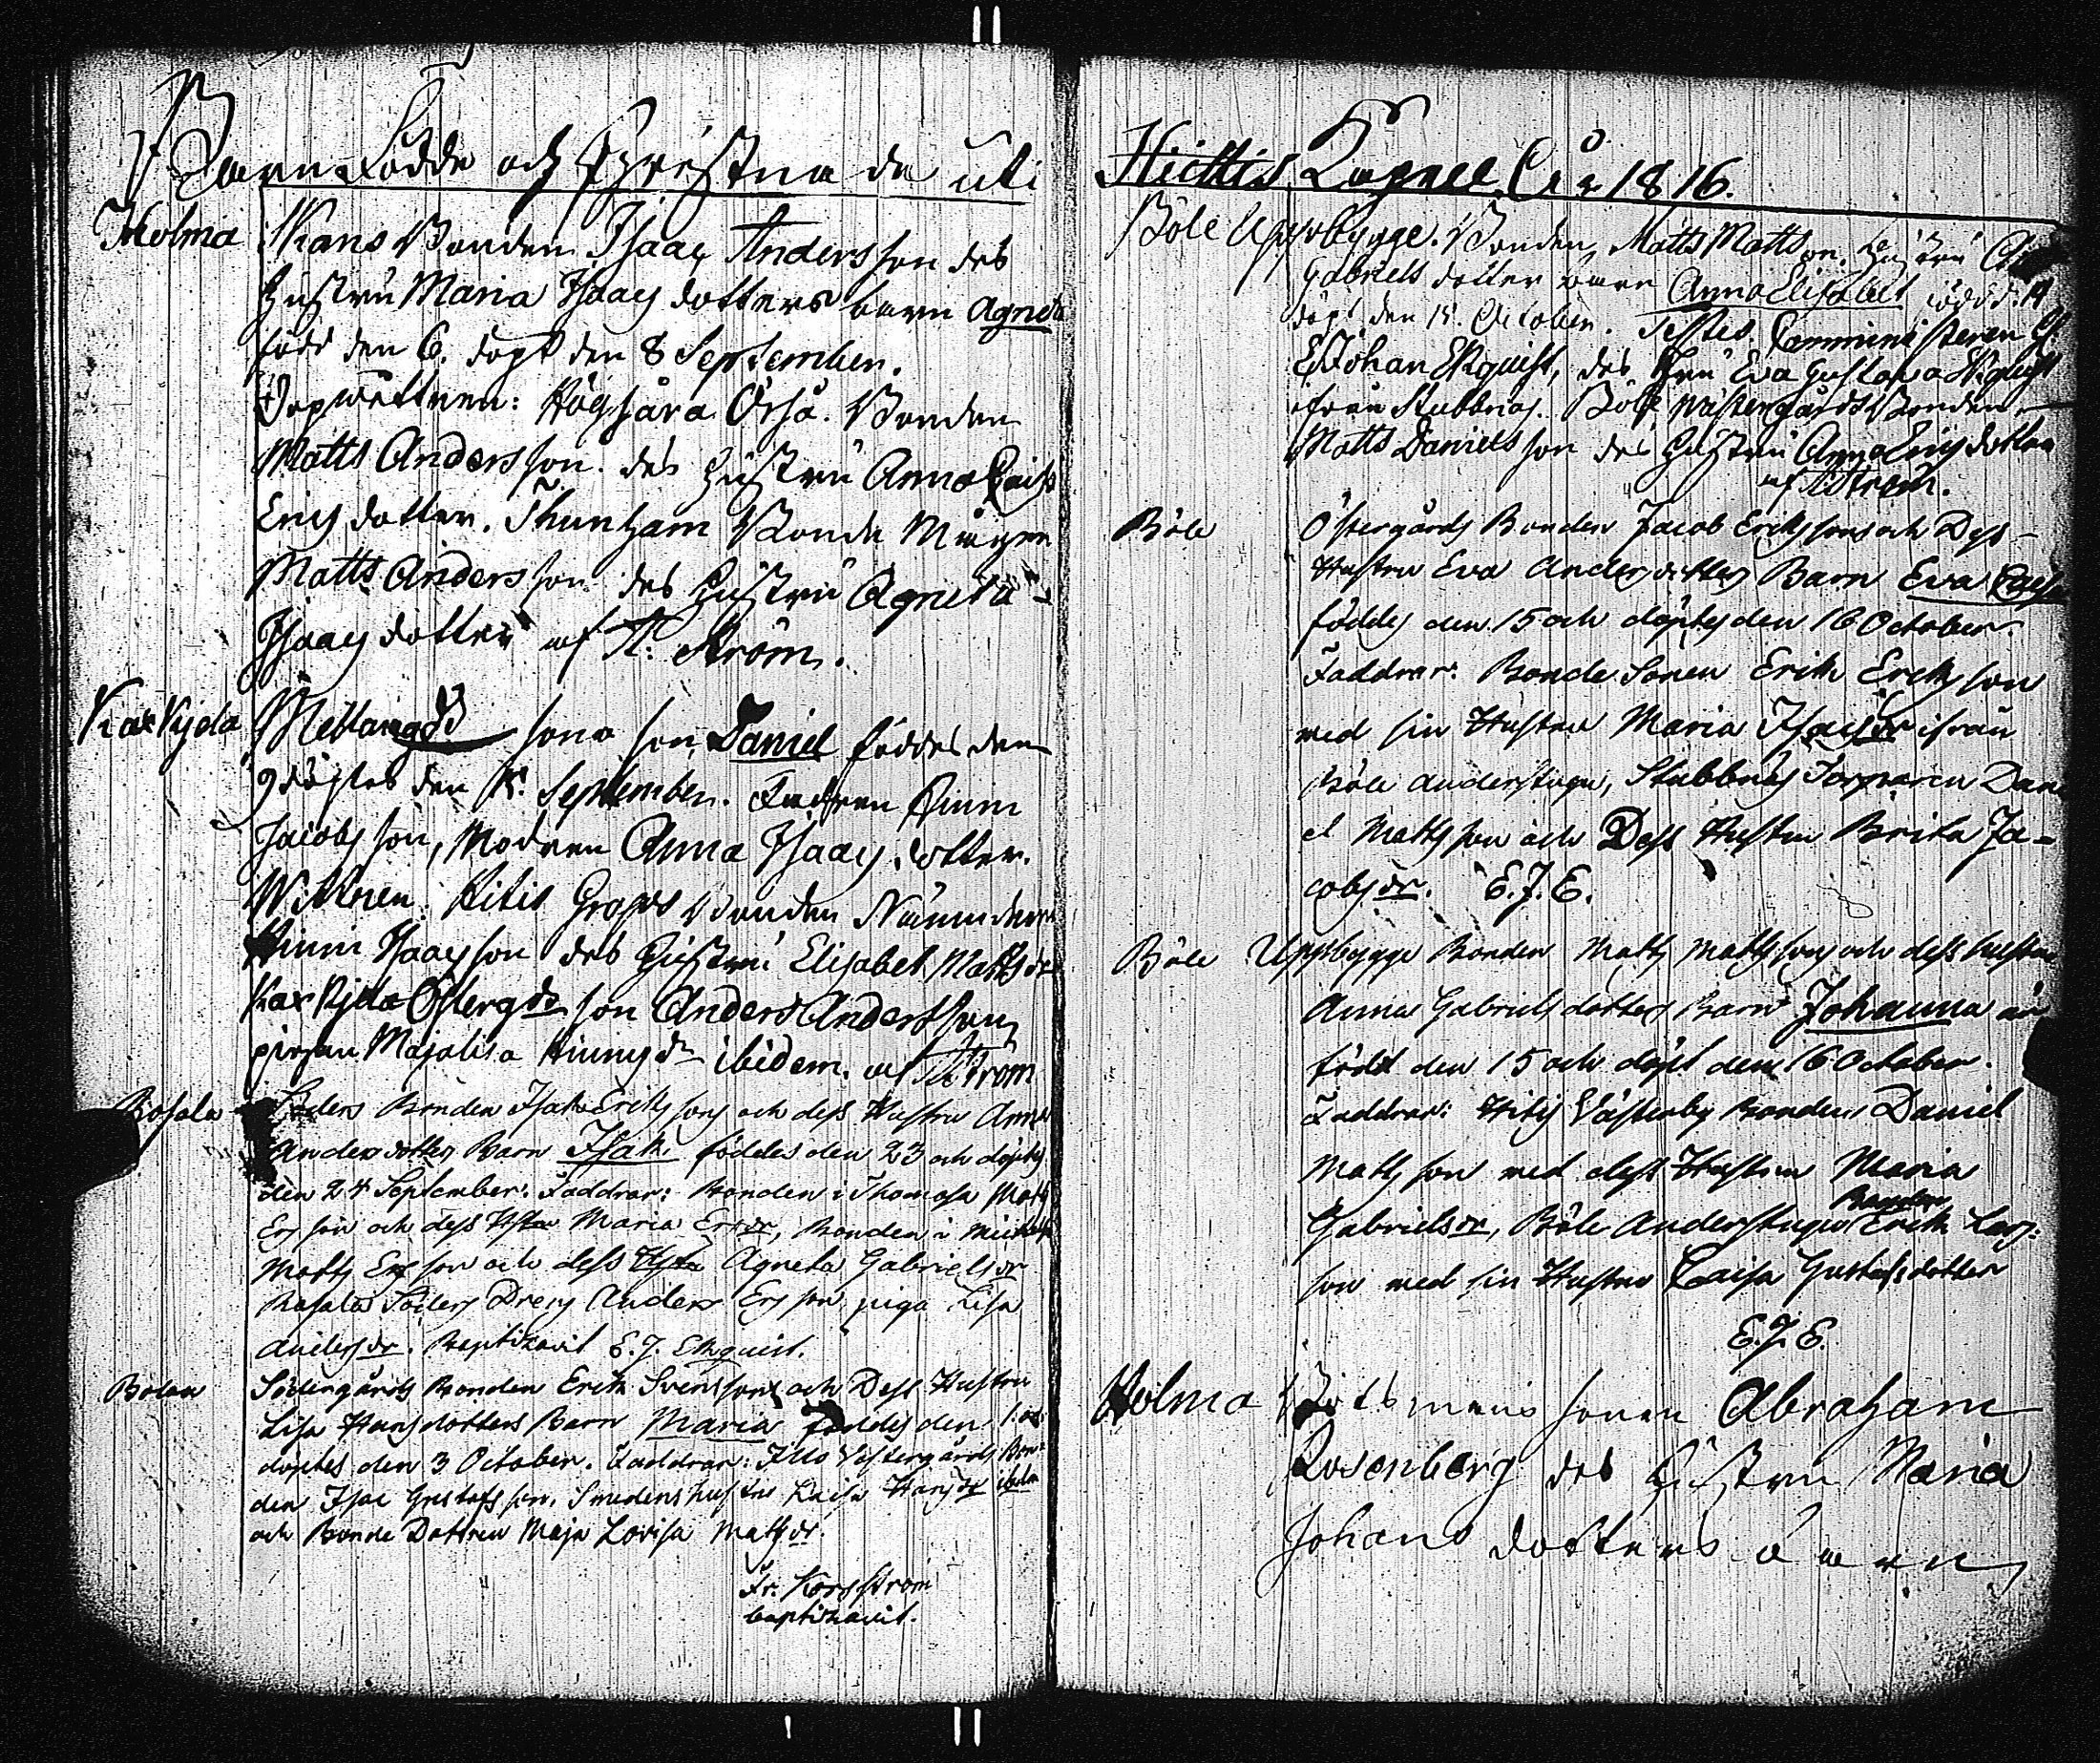 Barn Födde och Christnade uti
Holma Nians Bonden Isaac Andersson des
Hustru Maria Isaacs dotters barn Agneta
född den 6. döpt den 8 September.
Dopwittnen: Högsåra Örså. Bonden
Matts Andersson des Hustru Anna Caisa
Erics dotter. Thunham Bonde Mågen
Matts Andersson des Hustru Agneta
Isaacs dotter af A: Ström.
Kaxkjela Mellangds sons son Daniel föddes den
9 döptes den September. Fadren Hinric
Jacobsson, Modren Anna Isaacs dotter.
Wittnen: Hitis Grops Bonden Nämndem
Hinric Isaacsson des Hustru Elisabet Mattsdr
Kaxkjela Östergds son Anders Andersson
pigan Majalisa Hinricsdr ibidem. af Ström
Rosala Söders Bonden Isak Erikssons och dess Hustru Anna
Andersdotters Barn Isak föddes den 23 och döptes
den 24 September. Faddrar: Bonden i Thomasa Matts
Ersson och dess Hstu Maria Ersdr, Bonden i
Matts Ersson och dess Hstu Agneta Gabrielsdr
Rosala Söders Dreng Anders Ersson, piga Lisa
Andersdr. Baptizavit E. J. Ekquist.
Bolax Södergårds Bonden Erik Svenssons och Dess Hustru
Lisa Hansdotters Barn Maria föddes den 1. och
döptes den 3 October. Faddrar: Westergårds Bon-
den Isac Gustafsson, Smedens hustru Caisa Hansdr ibidm
och Bonde Dottren Maja Lovisa Mattsdr.
Fr. Korsström
baptizavit.
Hiittis Capell År 1816.
Böle Uppbygge. Bonden Matts Mattsson. Hustru
Gabriels dotters barn Anna Elisabet född d. 14
döpt den 15. October. Testes. Comministeren
E Johan Ekquist, des Fru Eva Gustava Ekquist
ifrån Stubbnäs. Böle Wästergårds Bonden
Matts Danielsson des Hustru Anna Erics dotter
af Ström.
Böle Östergårds Bonden Jacob Erikssons och Dess
Hustru Eva Andersdotters Barn Eva Caisa
föddes den 15 och döptes den 16 October.
Faddrar: Bonde Sonen Erik Eriksson
med sin Hustru Maria Isacsdr ifrån
Böle Anderstuga, Stubbnäs Torparen Dani
el Mattsson och Dess Hustru Brita Ja-
cobsdr. E. J. E.
Böle Uppbygge Bonden Matts Mattssons och dess hustru
Anna Gabrielsdotters Barn Johanna är
född den 15 och döpt den 16 October.
Faddrar: Hitis Västerby Bonden Daniel
Mattsson med dess Hustru Maria
Gabrielsdr, Böle Anderstuga Bonden Erik Lars-
son med sin Hustru Caisa Gustafsdotter
E. J. E.
Holma Båtsmans sonen Abraham
Rosenberg des Hustru Maria
Johans dotters barn